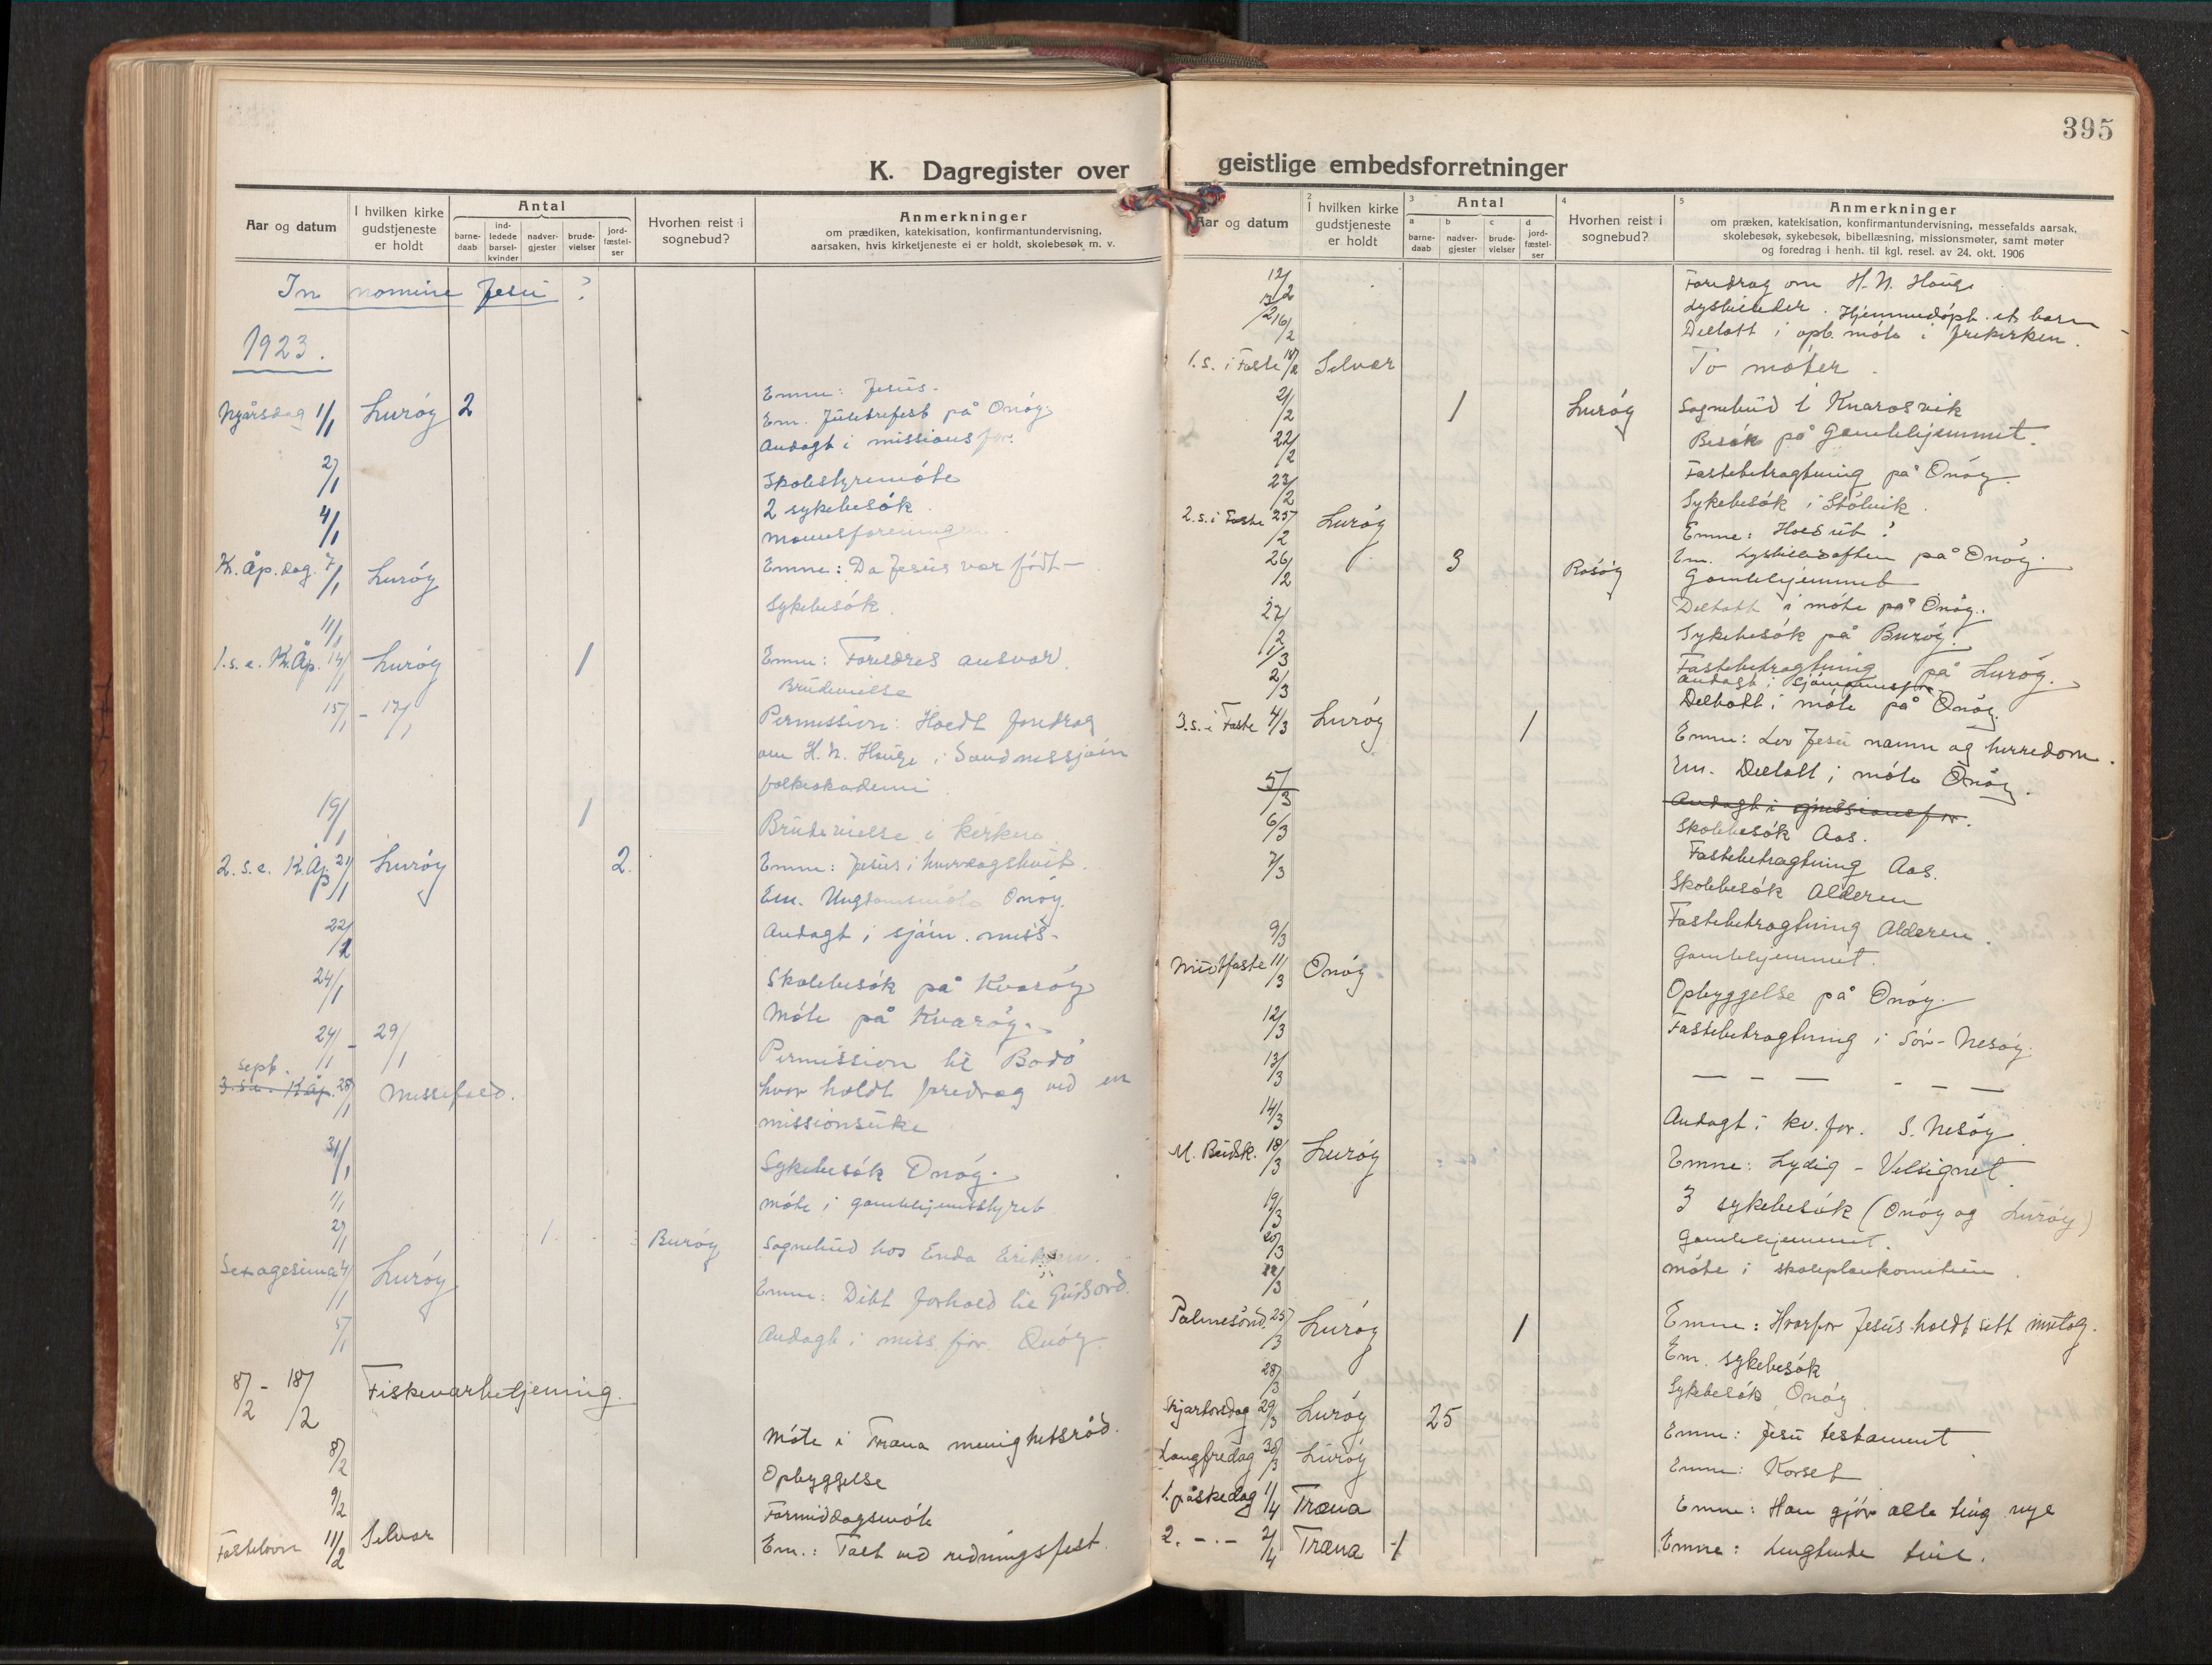 K. Dagregister over
Aar og datum
I hvilken kirke gudstjeneste er holdt
Antal
barne-daab
ind-ledede barsel-kvinder
nadver-gjester
brude-vielser
jord-fæstel-ser
Hvorhen reist i sognebud?
Anmerkninger
om prædiken, katekisation, konfirmantundervisning,
aarsaken, hvis kirketjeneste ei er holdt, skolebesøk m. v.
In nomine Jesu
1923.
Emne: Jesus.
Nyårsdag 1/1 Lurøy 2 Em. Juletrefest på Onøy.
Andagt i missionsfor.
2/1 Skolestyremøte
2 sykebesøk
4/1 Mannsforeningen
Kr. Åp. dag 7/1 Lurøy Emne: Da Jesus var født –
Sykebesøk.
11/1
1. s. e. Kr. Åp. 14/1 Lurøy 1 Emne: Foreldres ansvar.
Brudevielse
15/1 – 17/1 Permission: Holdt foredrag
om H. N. Hauge i Sandnessjøen
folkeakademi
19/1 1 Brudevielse i kirken
2. s. e. K. Åp 21/1 Lurøy 2. Emne: Jesus i hverdagslivet.
Em. Ungdomsmøte Onøy.
22/1 Andagt i sjøm. miss.
24/1 Skolebesøk på Kvarøy
Møte på Kvarøy.
24/1 – 29/1 Permission til Bodø
Sept. 28/1 Messefald. hvor holdt foredrag ved en
3. s. e. K. Åp.
missionsuke
31/1 Sykebesøk Onøy.
1/1 Møte i gamlehjemsstyret
2/1 1 Burøy Sognebud hos Enda Eriksen.
Sexagesima 4/1 Lurøy Emne: Ditt forhold til Guds ord.
5/1 Andagt i miss. for. Onøy.
8/2 – 18/2 Fiskeværbetjening.
8/2 Møte i Træna menighetsråd.
Opbyggelse
9/2 Formiddagsmøte
Fastelavn 11/2 Selvær Em.: Talt ved redningsfest.
395
geistlige embedsforretninger
Aar og datum
2 I hvilken kirke gudstjeneste er holdt
3 Antal
a barne-daab
b nadver-gjester
c brude-vielser
d jord-fæstel-ser
4 Hvorhen reist i sognebud?
5 Anmerkninger
om præken, katekisation, konfirmantundervisning, messefalds aarsak,
skolebesøk, sykebesøk, bibellæsning, missionsmøter, samt møter
og foredrag i henh. til kgl. resel. av 24. okt. 1906
12/2 Foredrag om H. N. Hauge
13/2 Lysbilleder. Hjemmedøpt et barn
16/2 Deltatt i opb. møte i frikirken.
1. s. i Faste 18/2 Selvær To møter.
21/2 1 Lurøy Sognebud i Kvarøsvik
22/2 Besøk på Gamlehjemmet.
23/2 Fastebetragtning på Onøy.
Sykebesøk i Stølvik.
2. s. i Faste 25/2 Lurøy Emne: Hold ut!
Em. Lysbilledaften på Onøy.
26/2 3 Rosøy Gamlehjemmet
Deltatt i møte på Onøy.
27/2 Sykebesøk på Burøy.
1/3 Fastebetragtning på Lurøy.
2/3 Andagt i sjømannsfor.
Deltatt i møte på Onøy.
3. s. i Faste 4/3 Lurøy 1 Emne: Lov Jesu navn og herredom.
Em. Deltatt i møte Onøy.
5/3 Andagt i missionsfor.
6/3 Skolebesøk Aas.
Fastebetragtning Aas.
7/3 Skolebesøk Alderen
Fastebetragtning Alderen.
9/3 Gamlehjemmet.
Midtfaste 11/3 Onøy Opbyggelse på Onøy.
12/3 Fastebetragtning i Sør-Nesøy.
13/3 — — — - — —
14/3 Andagt i kv. for. S. Nesøy.
M. Budsk. 18/3 Lurøy Emne: Lydig – Velsignet.
19/3 3 sykebesøk (Onøy og Lurøy)
20/3 Gamlehjemmet.
22/3 Møte i skoleplankomiteen.
Palmesønd. 25/3 Lurøy 1 Emne: Hvorfor Jesus holdt sitt inntog.
Em. sykebesøk
28/3 Sykebesøk, Onøy.
Skjærtorsdag 29/3 Lurøy 25 Emne: Jesu testament
Langfredag 30/3 Lurøy Emne: Korset
1. påskedag 1/4 Træna Emne: Han gjør alle ting nye
2. – . – 2/4 Træna 1 Emne: